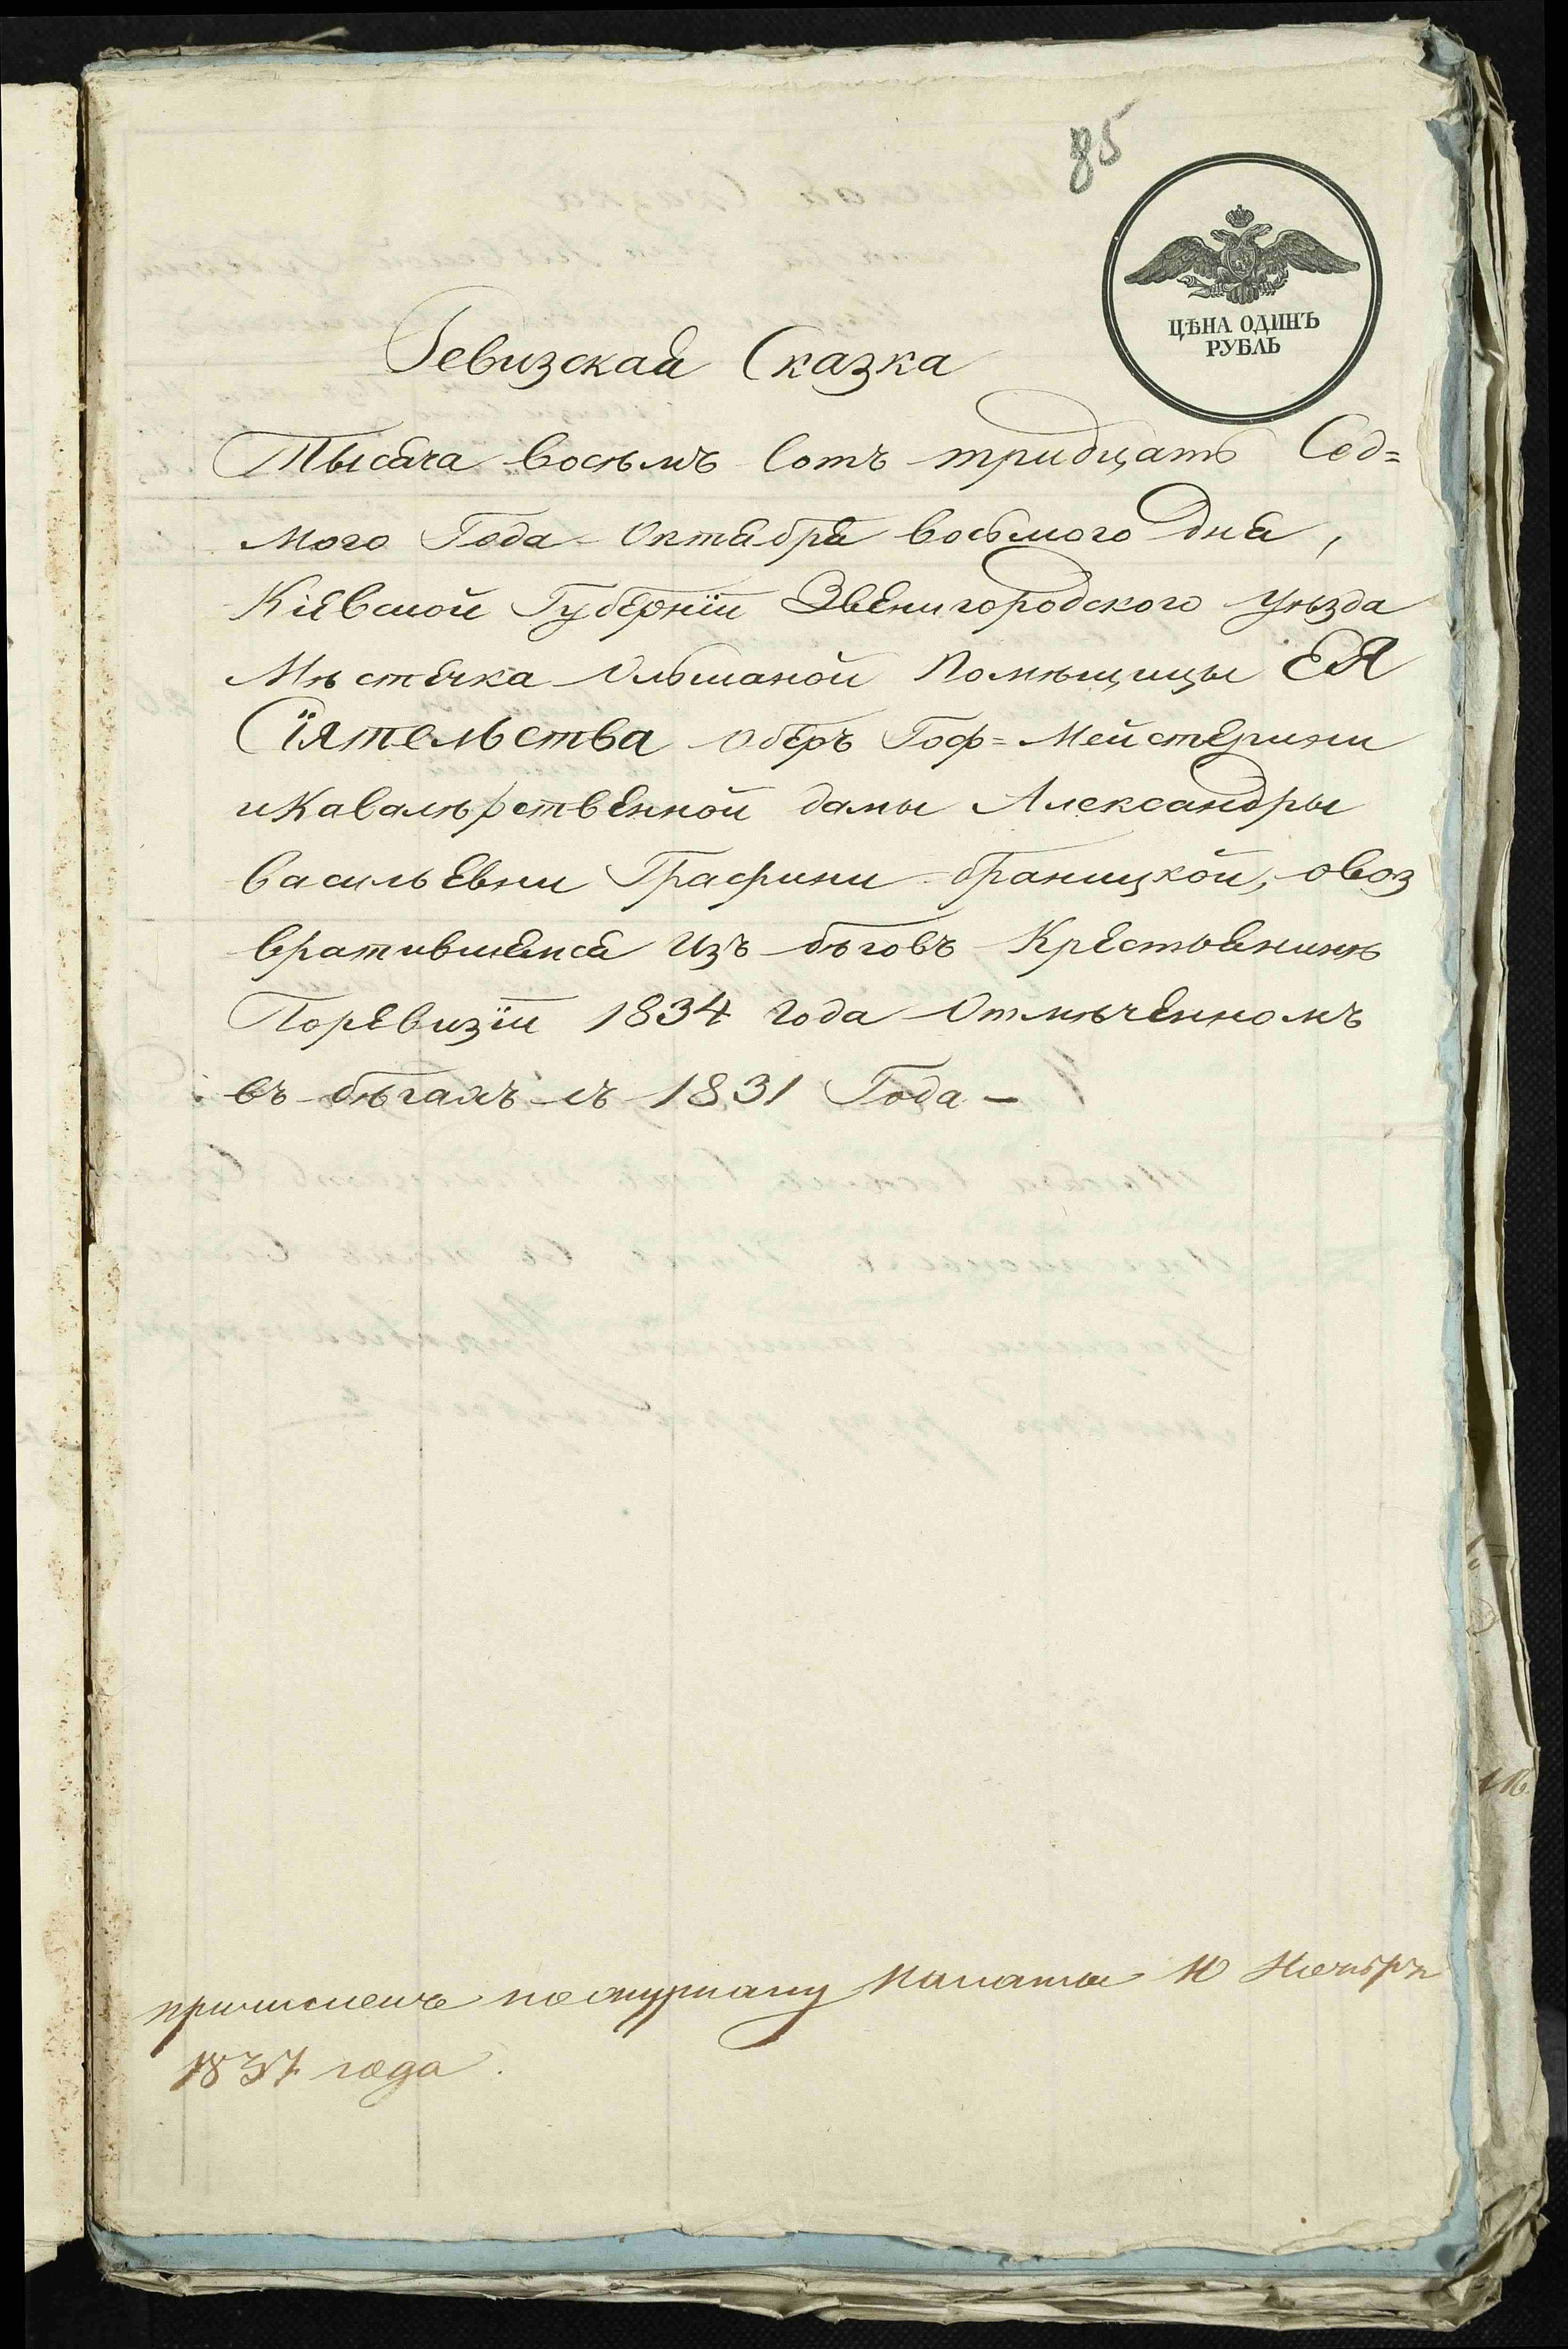 85
ЦѢНА ОДИНЪ
РУБЛЬ
Ревизская Сказка
Тысяча восѣмъ Сотъ тридцать Сед=
мого Года Октября восьмого Дня,
Кіевской Губерніи Звенигородского уѣзда
Мѣстечка Ольшаной Помѣщицы ЕЯ
Сіятельства Оберъ Гоф=Мейстерини
и Кавалѣрственной дамы Александры
васильевни Графини браницкой, овоз
вратившемся Изъ бѣговъ Крестьянинѣ
Поревизіи 1834 года Отмѣченномъ
въ бѣгахъ съ 1831 Года —
причисленъ по журналу Палаты 10 Ноября
1837 года.